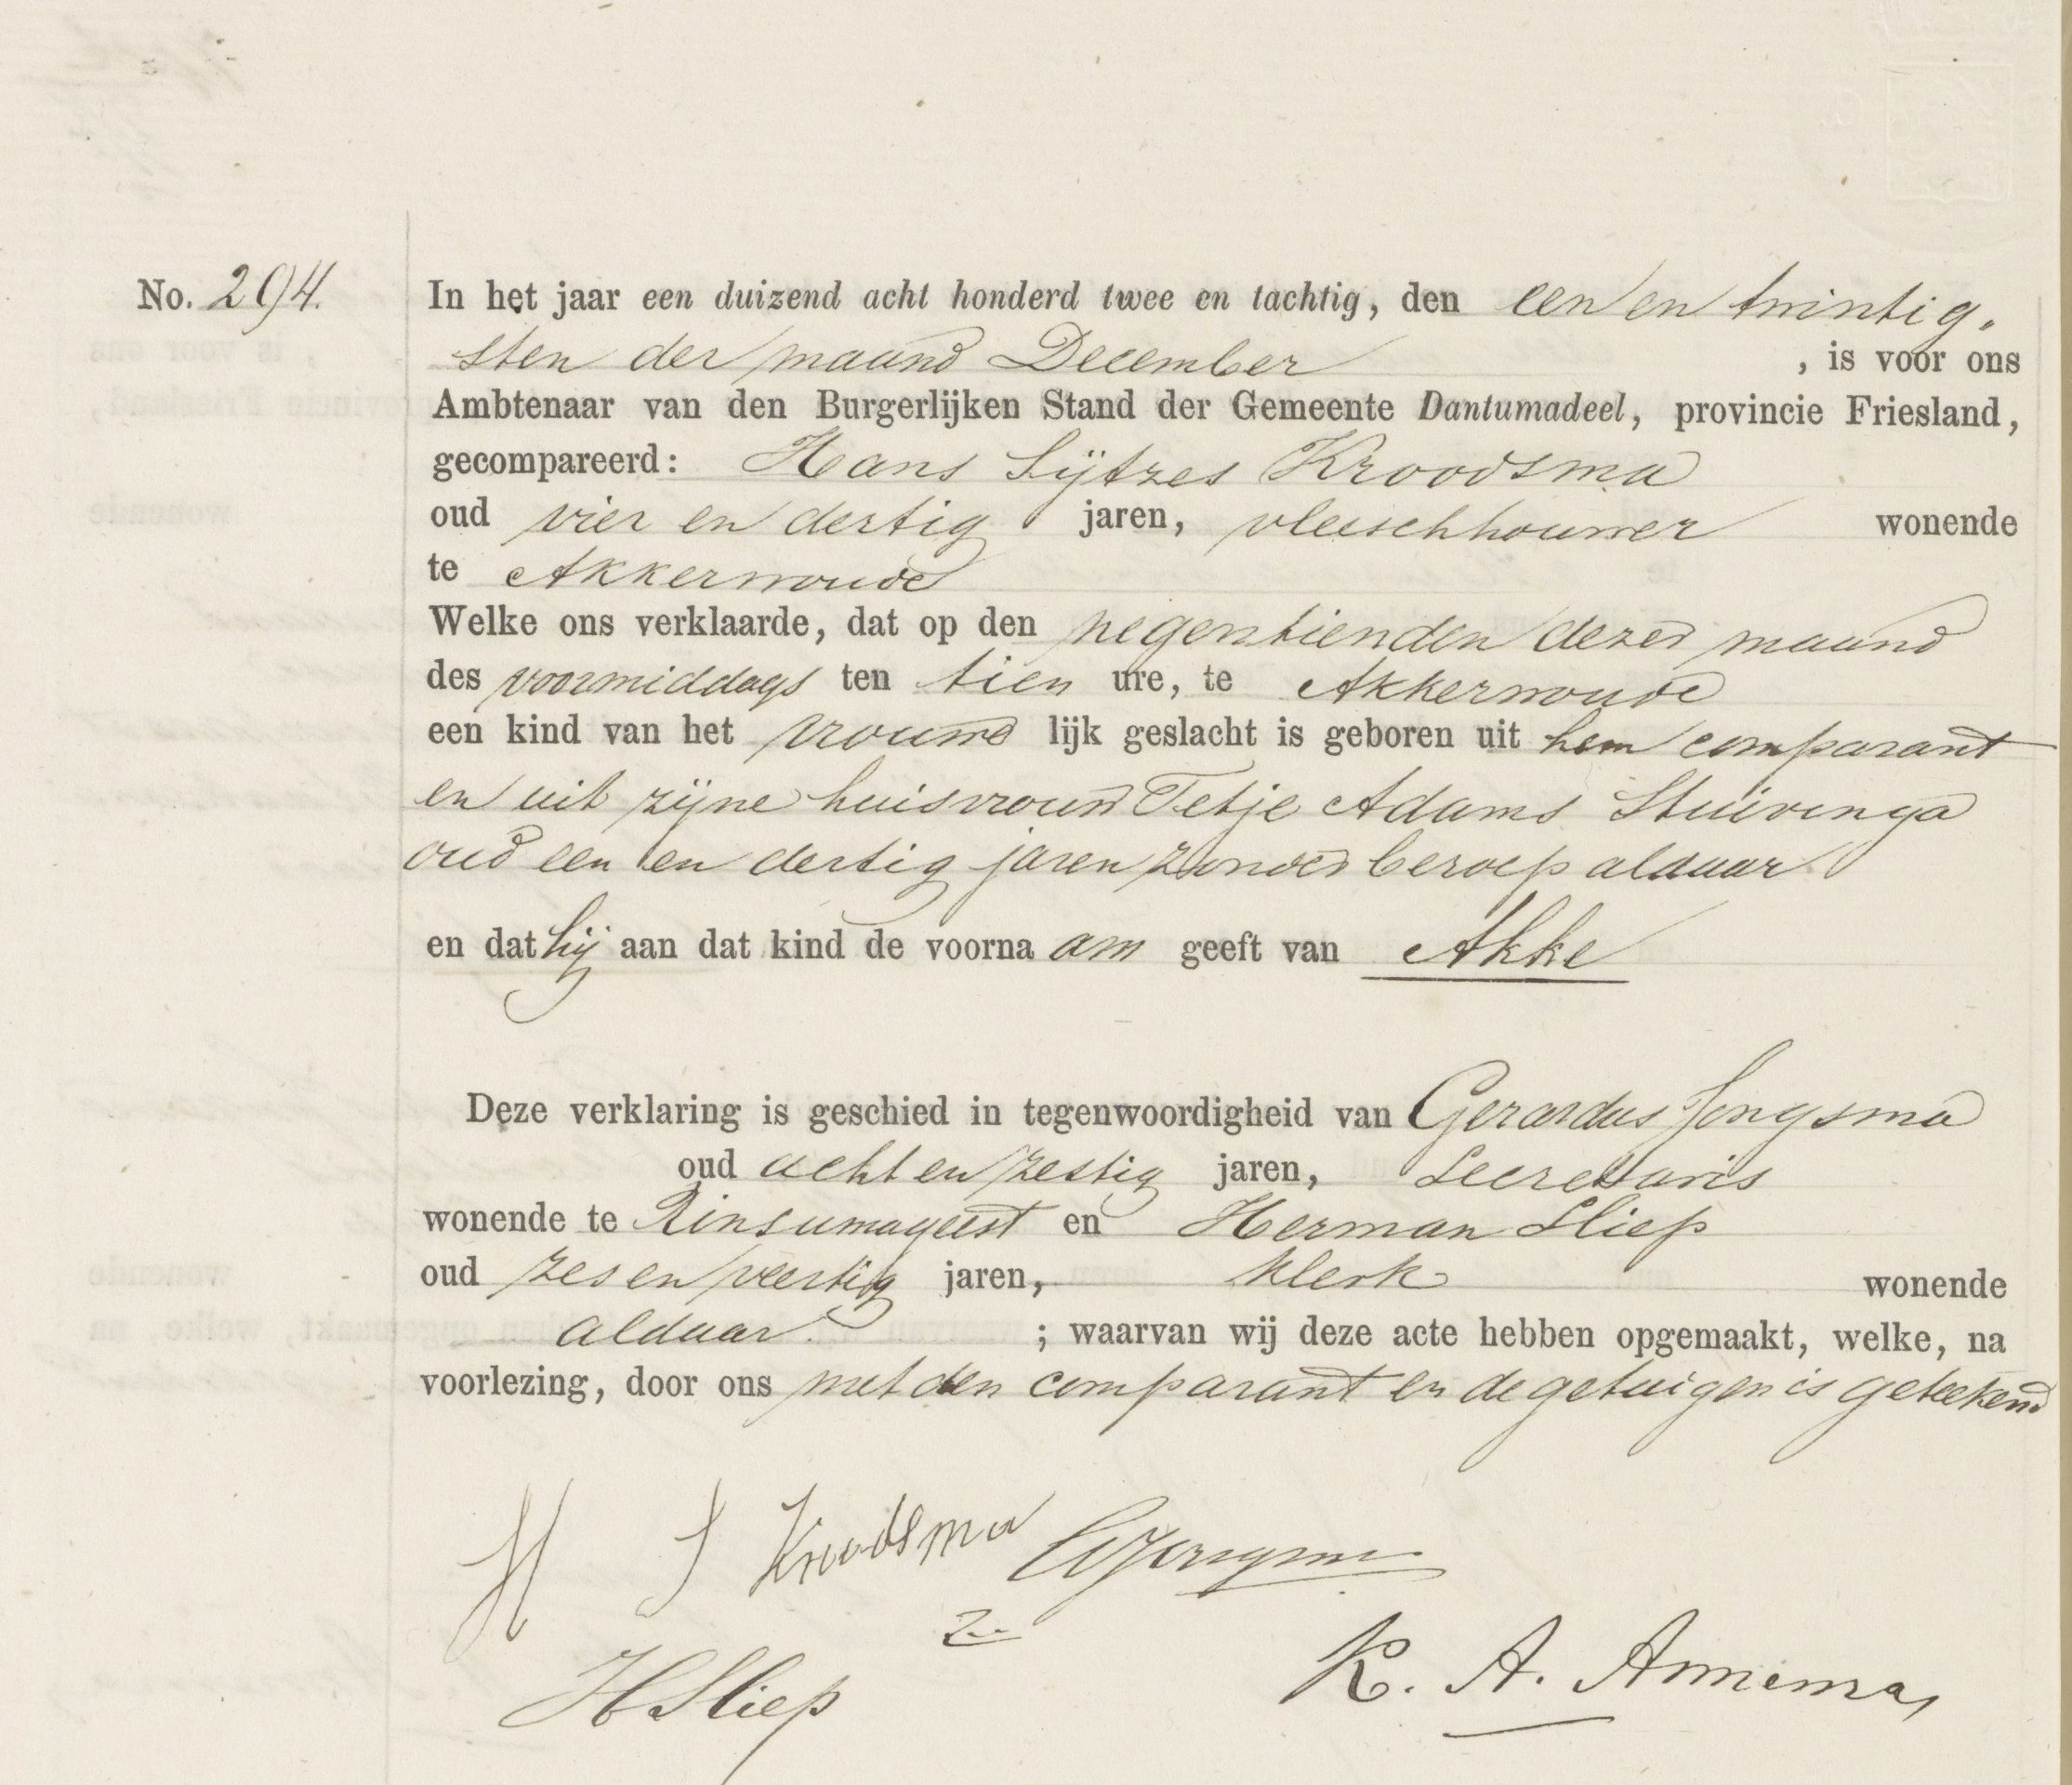 No. 294.
In het jaar een duizend acht honderd twee en tachtig, den een en twintig-
sten der maand December , is voor ons
Ambtenaar van den Burgerlijken Stand der Gemeente Dantumadeel, provincie Friesland,
gecompareerd: Hans Sijtzes Kroodsma
oud vier en dertig jaren, vleeschhouwer wonende
te Akkerwoude
Welke ons verklaarde, dat op den negentienden dezer maand
des voormiddags ten tien ure, te Akkerwoude
een kind van het vrouwe lijk geslacht is geboren uit hem comparant
en uit zijne huisvrouw Tetje Adams Stuivinga
oud een en dertig jaren zonder beroep aldaar
en dat hij aan dat kind de voorna am geeft van Akke
Deze verklaring is geschied in tegenwoordigheid van Gerardus Jongsma
oud acht en zestig jaren, Secretaris
wonende te Rinsumageest en Herman Sliep
oud zes en veertig jaren, klerk wonende
aldaar. ; waarvan wij deze acte hebben opgemaakt, welke, na
voorlezing, door ons met den comparant en de getuigen is geteekend
H S Kroodsma GJongsma
HSliep
K. A. Annema